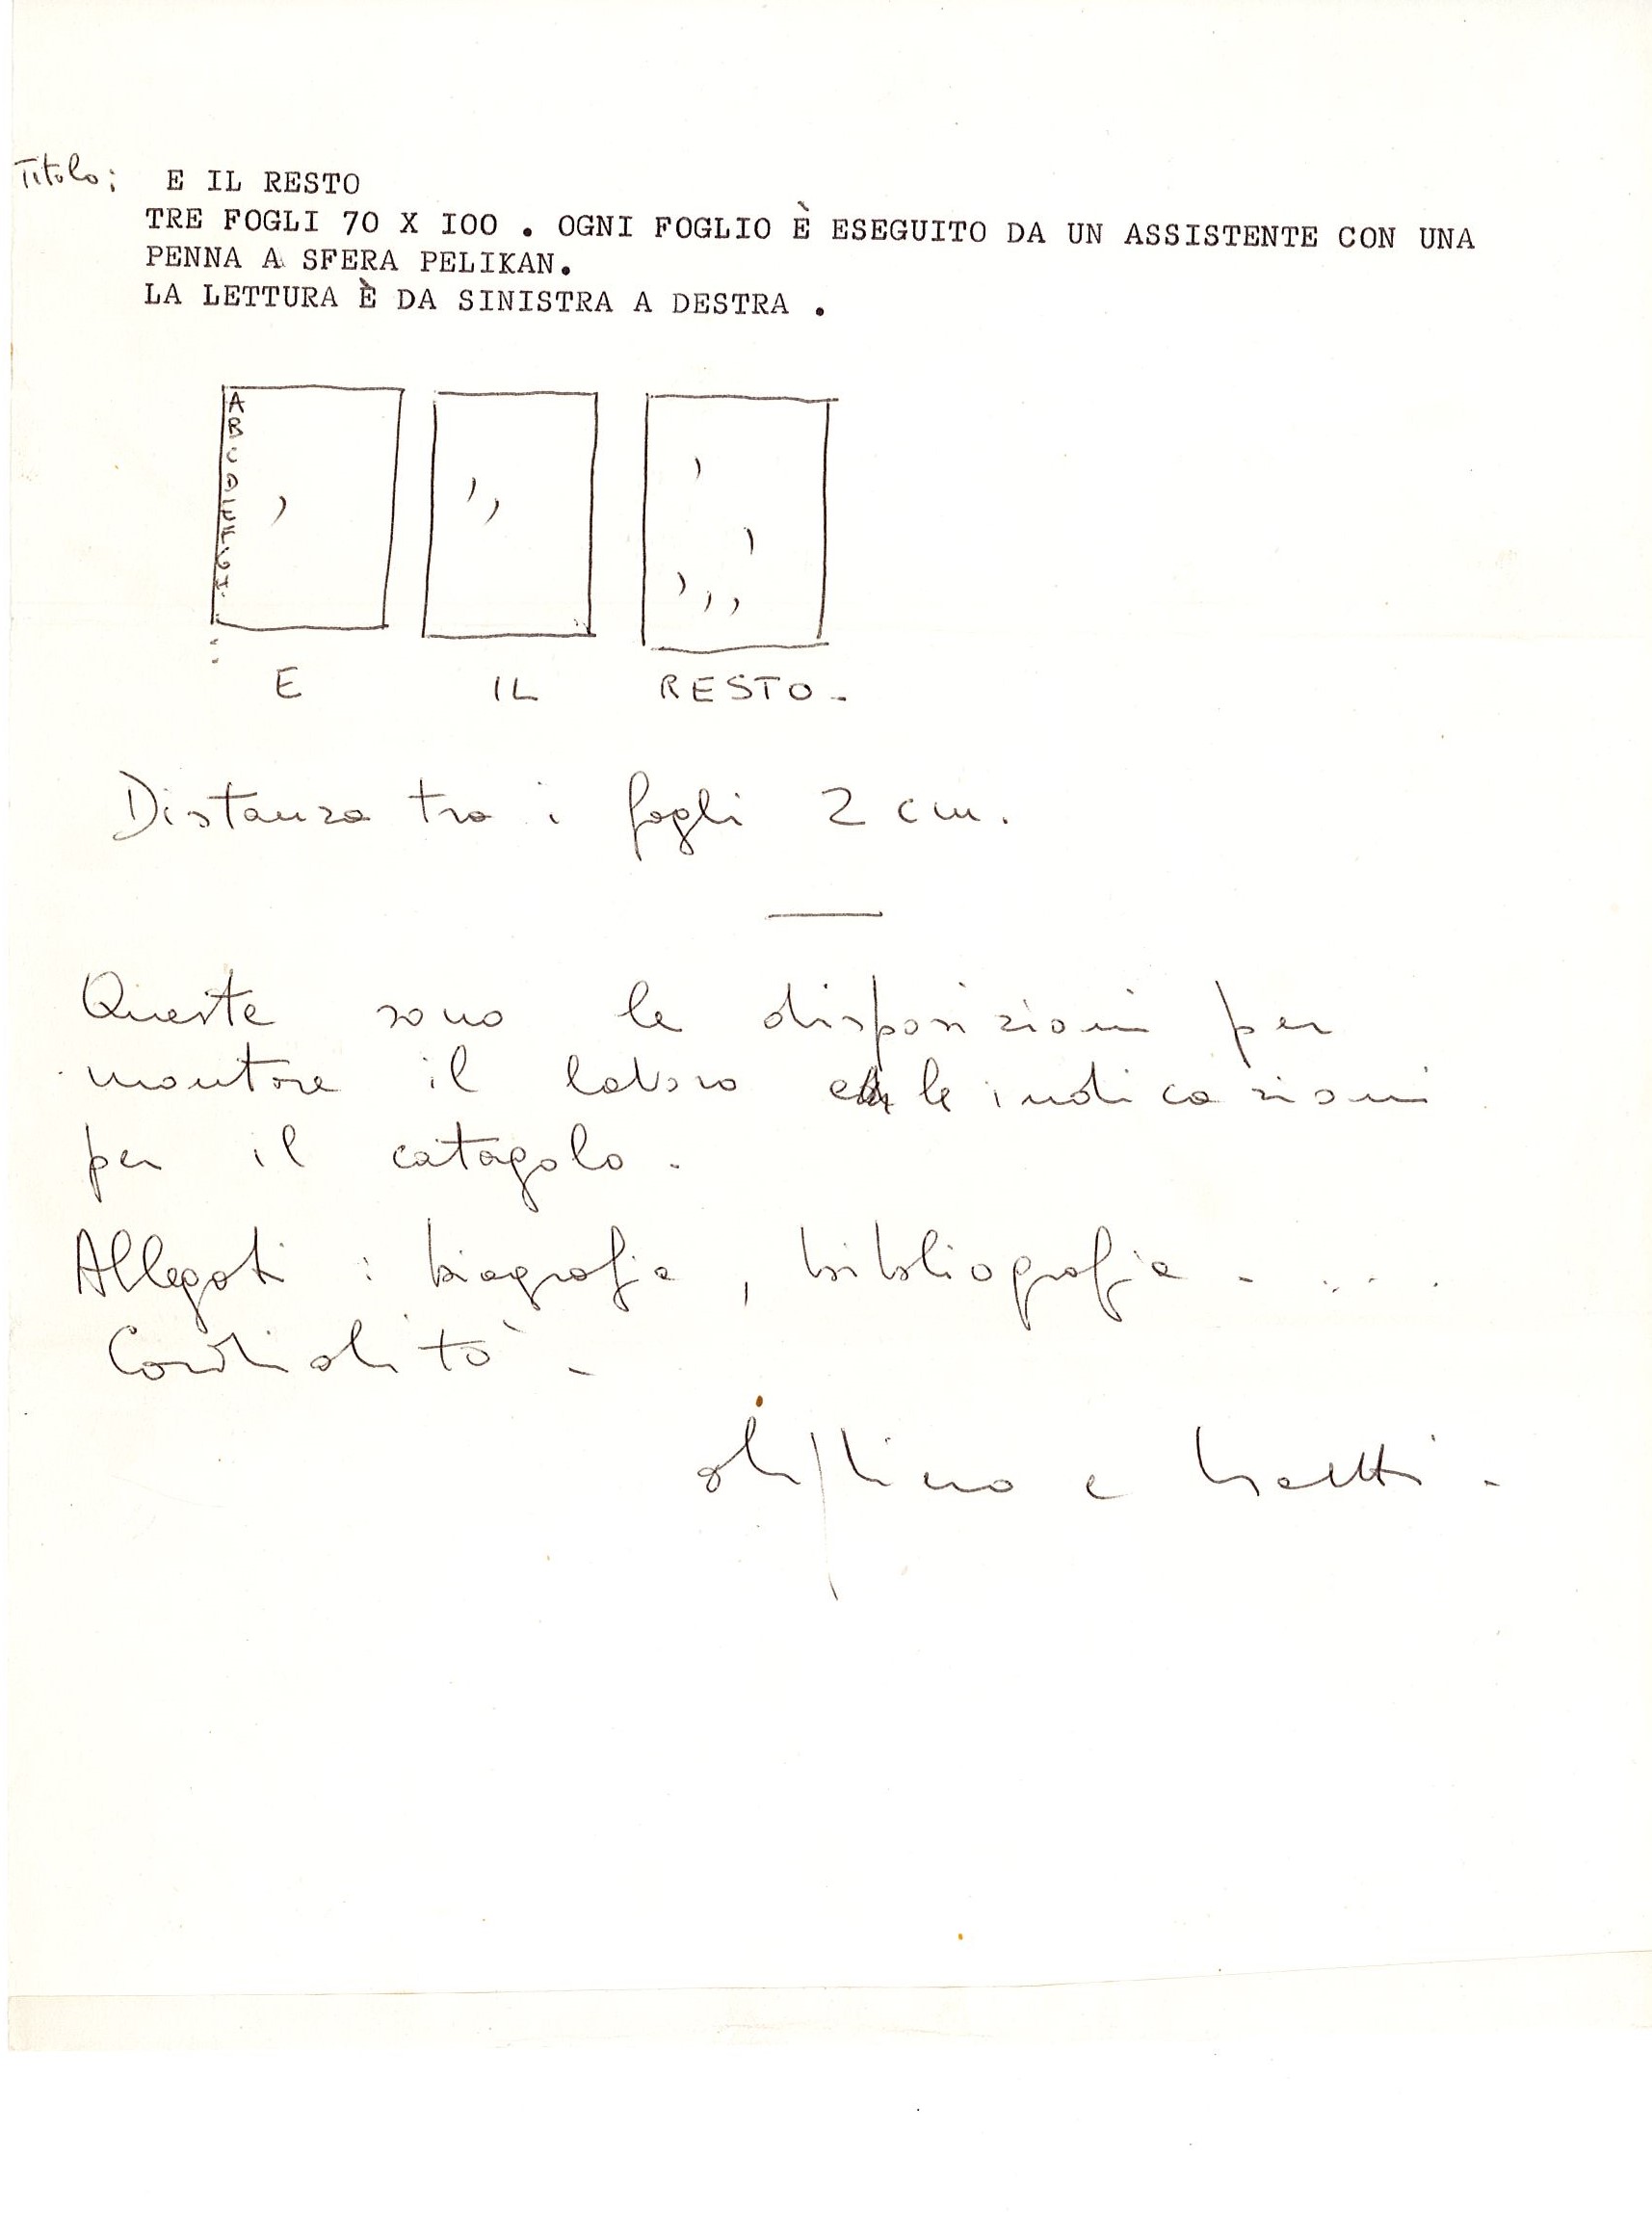 Titolo: E IL RESTO
TRE FOGLI 70 X I00 . OGNI FOGLIO È ESEGUITO DA UN ASSISTENTE CON UNA
PENNA A SFERA PELIKAN.
LA LETTURA È DA SINISTRA A DESTRA .
A
B
C
D
E
F
G
,
, ,
,
,
, , ,
E IL RESTO -
Distanza tra i fogli 2 cm.
Queste sono le disposizioni per
montare il lavoro e le indicazioni
per il catagolo .
Allegati : biografia , bibliografia - ....
Cordialità -
alighiero e boetti -